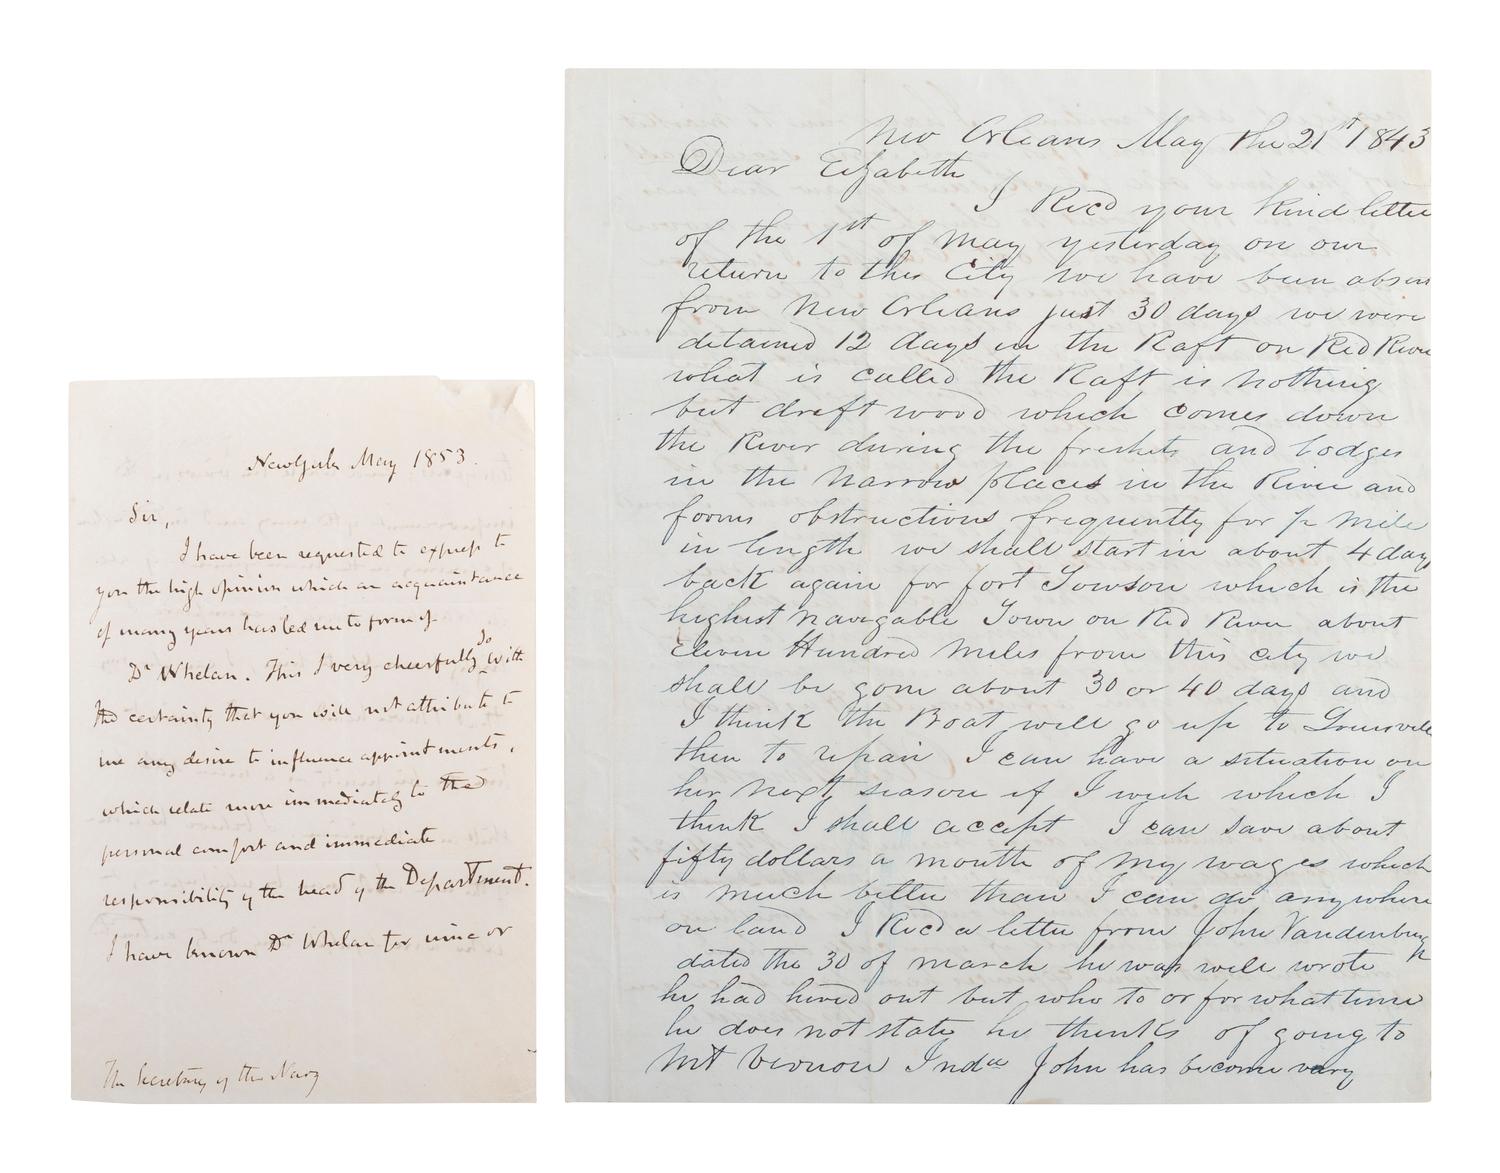 New York May 1853.
Sir,
I have been requested to express to
you the high opinion which an acquaintance
of many years has led me to form of
Dr Whelan. This I very cheerfully do with
the certainty that you will not attribute to
me any desire to influence appointments,
which relate more immediately to the
personal comfort and immediate
responsibility of the head of the Department.
I have known Dr Whelan for nine or
The Secretary of the Navy
New Orleans May the 21st 1843
Dear Elizabeth
I Recd your kind letter
of the 1st of may yesterday on our
return to this City we have been absen
from New Orleans just 30 days we were
detained 12 days in the Raft on Red River
what is called the Raft is nothing
but draft wood which comes down
the River during the freshets and lodges
in the Narrow places in the River and
forms obstructions frequently for 1/2 mile
in length we shall start in about 4 days
back again for fort Towson which is the
highest navagable Town on Red River about
Eleven Hundred Miles from this city we
shall be gone about 30 or 40 days and
I think the Boat will go up to Louisville
then to repair I can have a situation on
her next season if I wish which I
think I shall accept I can save about
fifty dollars a month of my wages which
is much better than I can do anywhere
on land I Recd a letter from John Vandenburgh
dated the 30 of march he was well wrote
he had hired out but who to or for what time
he does not state he thinks of going to
Mt vernon Inda John has become very